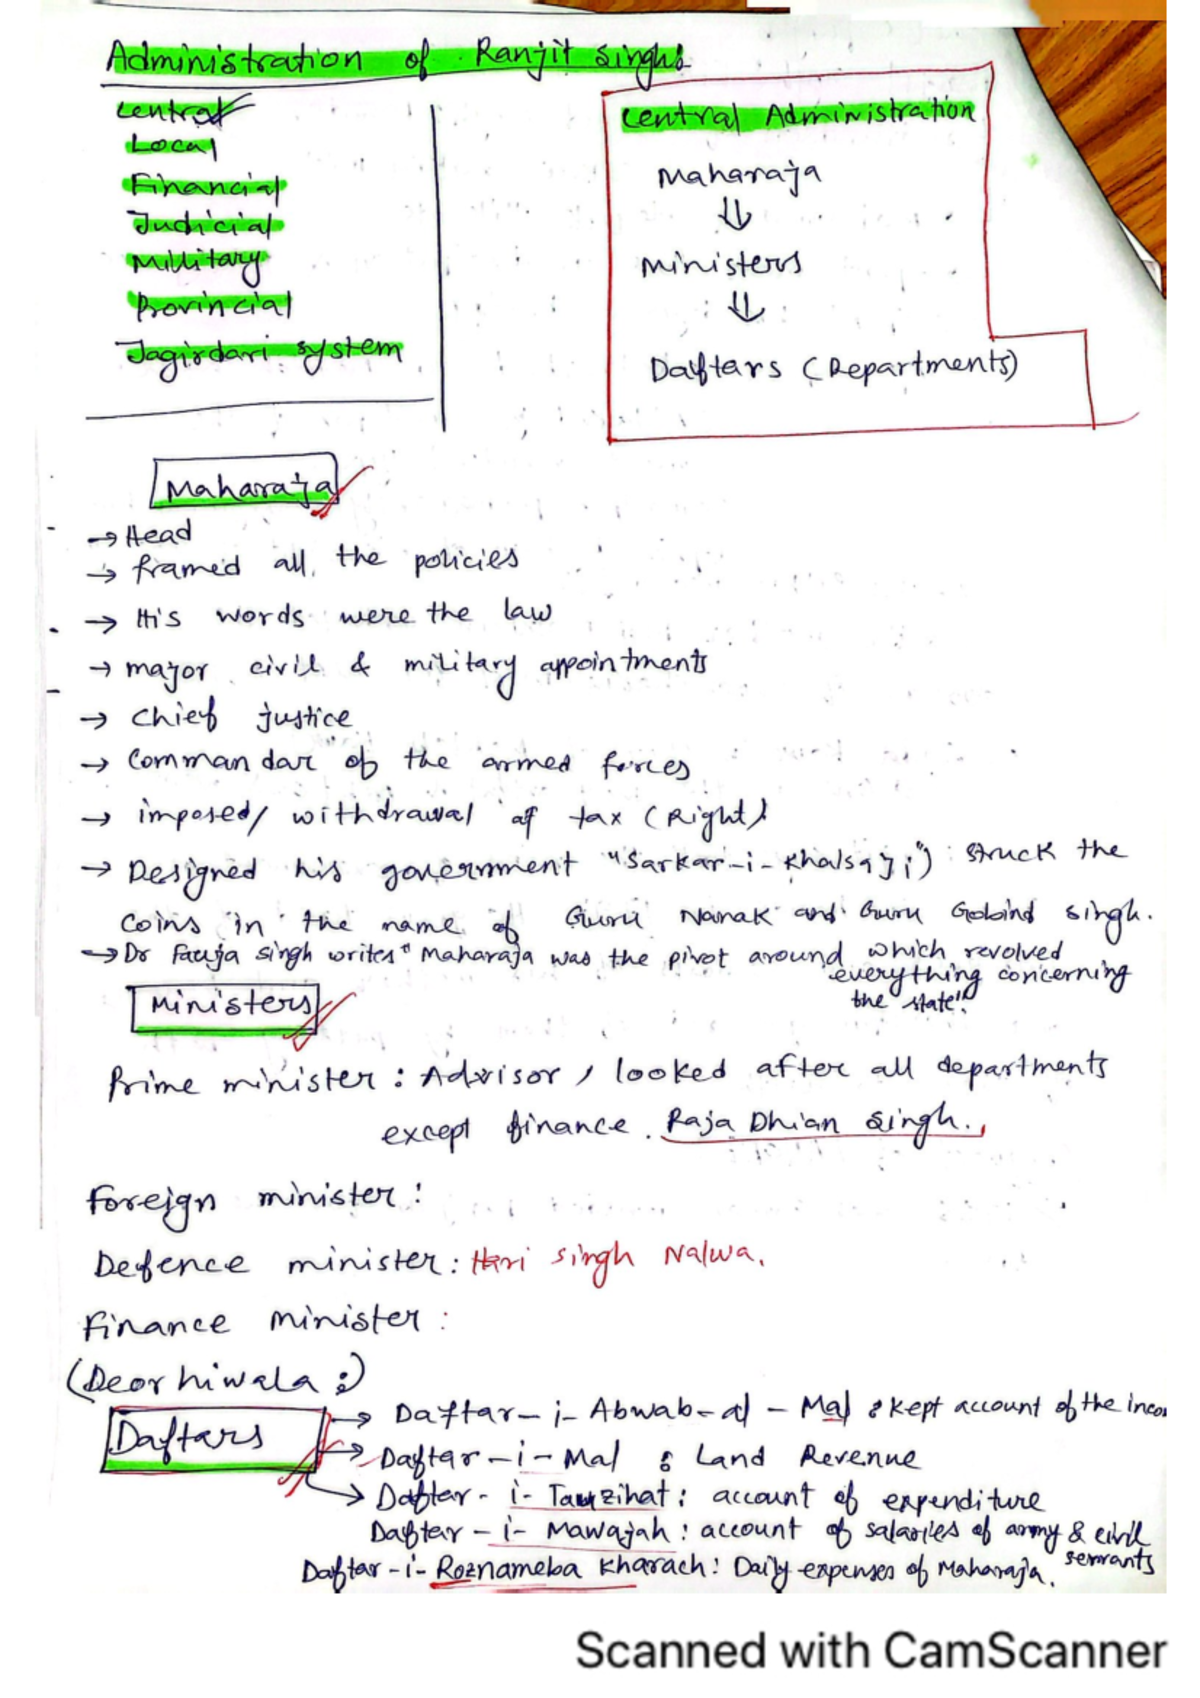 Administration of Ranjit Singh.
Central
Local
Financial
Judicial
Millitary
Provincial
Jagirdari system
Central Administration
Maharaja
Ministers
Daftars (Departments)
Maharaja
→ Head
→ framed all the policies
→ His words were the law
→ major civil & military appointments
→ chief justice
→ Commandar of the armed forces
→ imposed/ withdrawal of tax (Right)
→ Designed his government "Sarkar-i-Khalsaji") struck the
coins in the name of Guru Nanak and Guru Gobind Singh.
→ Dr Fauja Singh writes "Maharaja was the pivot around which revolved
everything concerning
the state".
Ministers
Prime minister : Advisor, looked after all departments
except finance. Raja Dhian Singh.
Foreign minister :
Defence minister : Hari Singh Nalwa.
Finance minister :
(Deorhiwala :)
Daftars
→ Daftar-i-Abwab-al-Mal : kept account of the inco
→ Daftar-i-Mal : Land Revenue
→ Daftar-i-Tauzihat : account of expenditure
Daftar-i-Mawajah : account of salaries of army & civil
servants
Daftar-i-Roznameba Kharach : Daily expenses of Maharaja.
Scanned with CamScanner